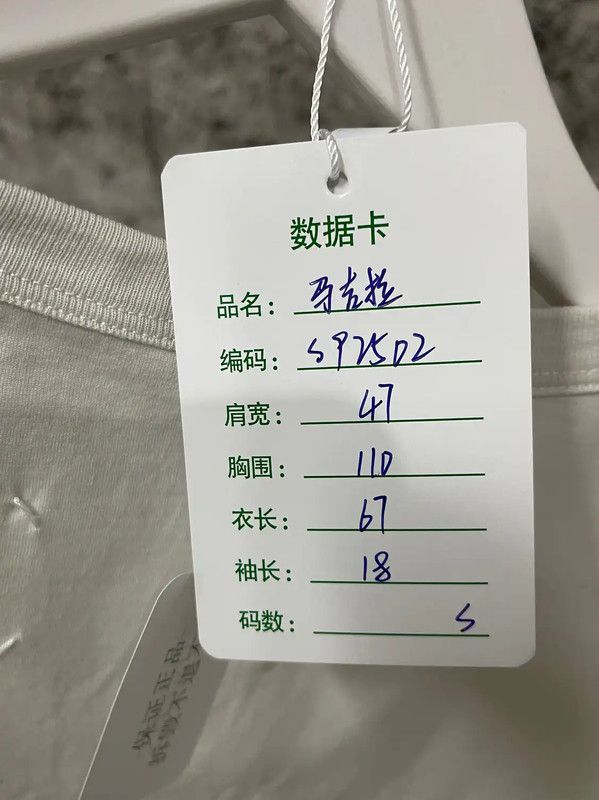 数据卡
品名：马吉拉
编码：S925D2
肩宽：47
胸围：110
衣长：67
袖长：18
码数：S
保证正品